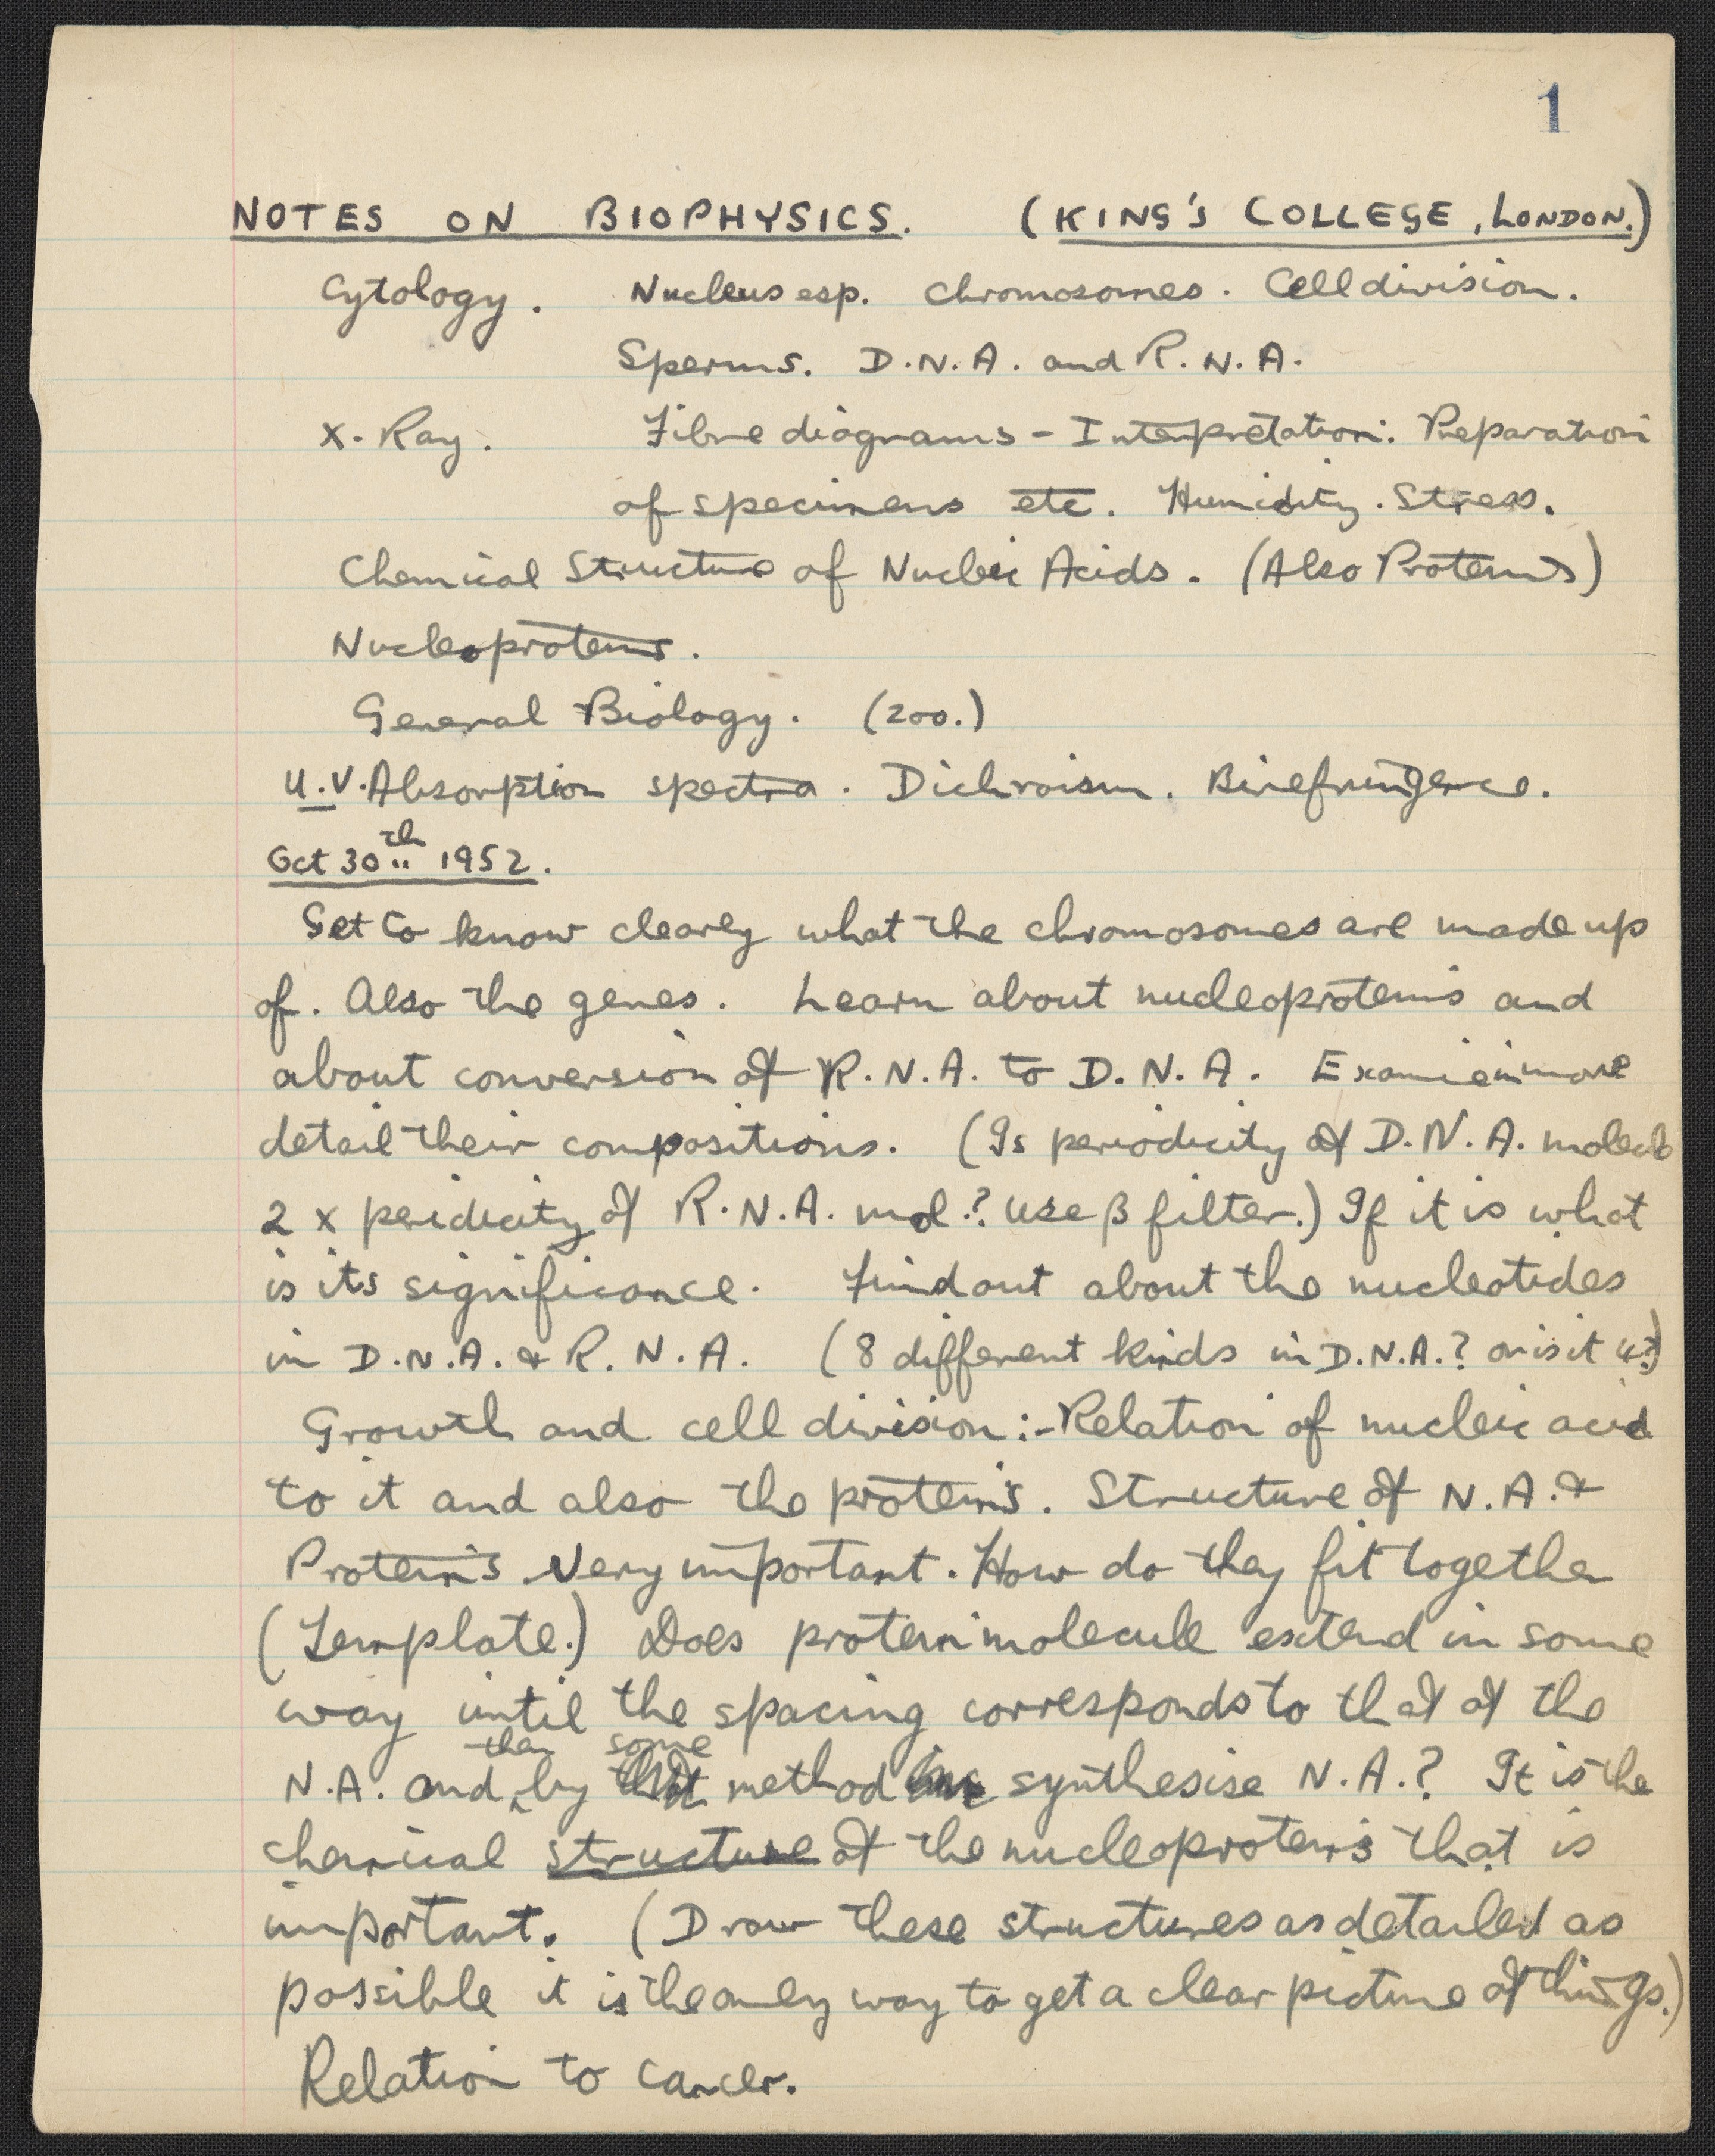 1
NOTES ON BIOPHYSICS. (KING'S COLLEGE, LONDON.)
Cytology. Nucleus esp. chromosomes. Cell division.
Sperms. D.N.A. and R.N.A.
X-Ray. Fibre diagrams - Interpretation. Preparation
of specimens etc. Humidity. Stress.
Chemical Structure of Nucleic Acids. (Also Proteins)
Nucleoproteins.
General Biology. (Zoo.)
U.V. Absorption spectra. Dichroism. Birefringence.
Oct 30th 1952.
Get to know clearly what the chromosomes are made up
of. Also the genes. Learn about nucleoproteins and
about conversion of R.N.A. to D.N.A. Examine in more
detail their compositions. (Is periodicity of D.N.A. molecule
2 x peridicity of R.N.A. mol.? Use β filter.) If it is what
is its significance. Find out about the nucleotides
in D.N.A. & R.N.A. (8 different kinds in D.N.A.? or is it 4?)
Growth and cell division:- Relation of nucleic acid
to it and also the proteins. Structure of N.A. &
Proteins Very important. How do they fit together
(Template.) Does protein molecule extend in some
way until the spacing corresponds to that of the
N.A. and then by some method synthesise N.A.? It is the
chemical structure of the nucleoproteins that is
important. (Draw these structures as detailed as
possible it is the only way to get a clear picture of things.)
Relation to cancer.